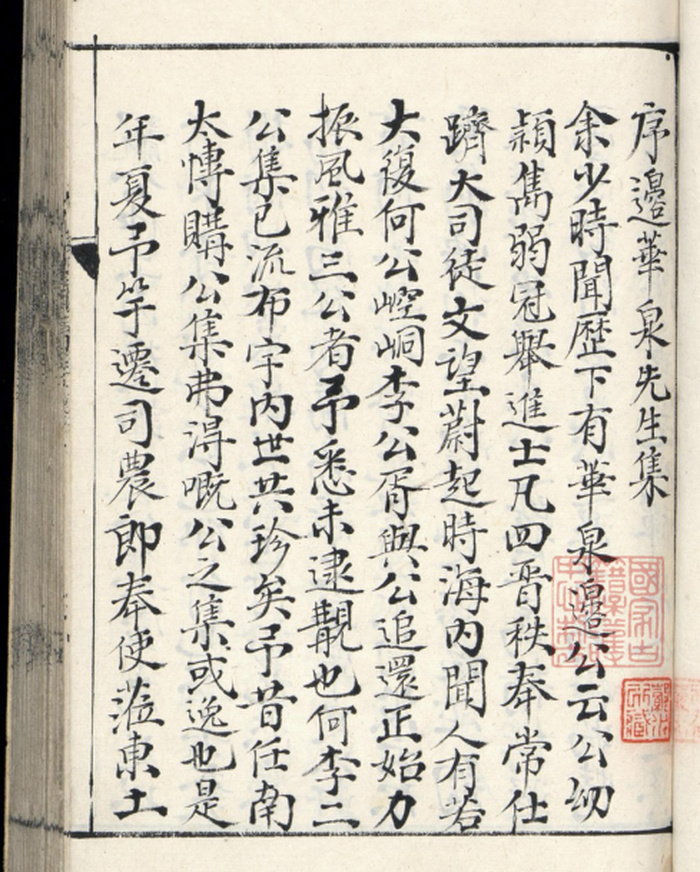 序邊華泉先生集
余少時聞歷下有華泉邊公云公幼
穎雋弱冠舉進士凡四晋秩奉常仕
躋大司徒文望蔚起時海内聞人有若
大復何公崆峒李公胥與公追還正始力
振風雅三公者予悉未逮覯也何李二
公集已流布宇内世共珍矣予昔任南
太博購公集弗得嘅公之集或逸也是
年夏予竿遷司農郎奉使蒞東土